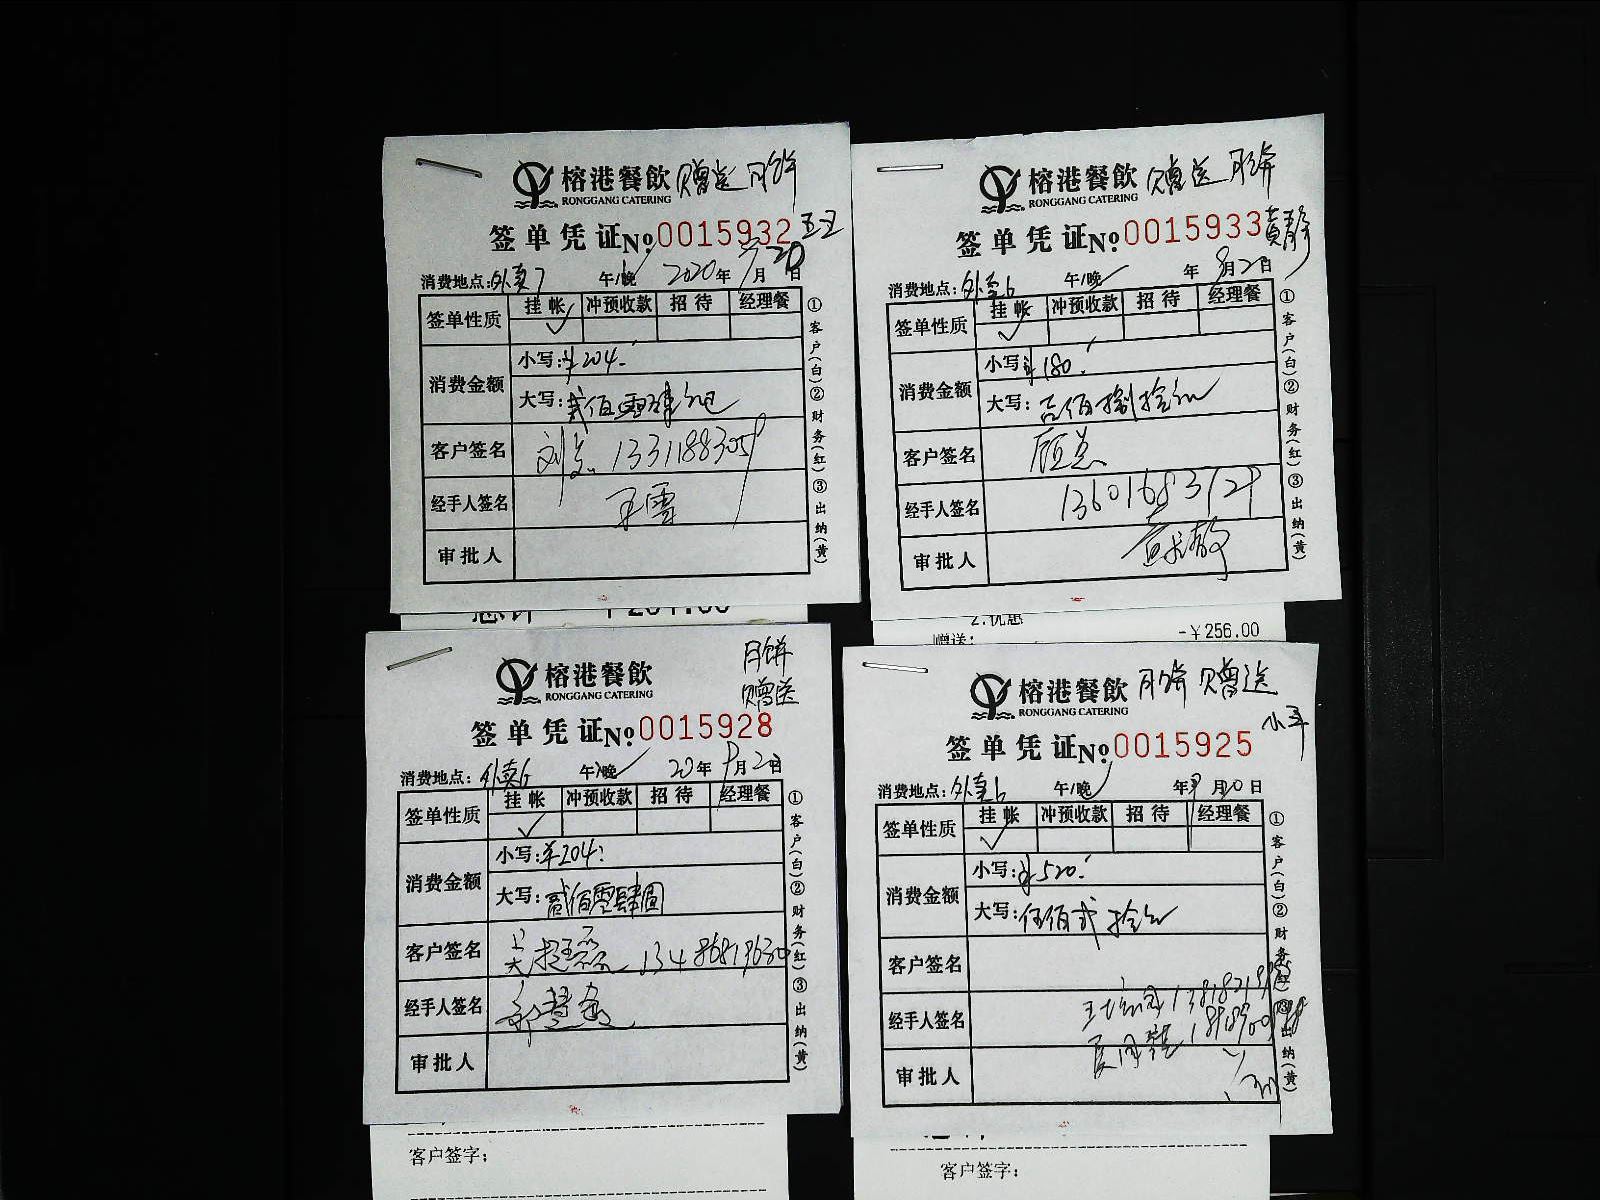 榕港餐飲 赠送 月饼
RONGGANG CATERING
签单凭证 No 0015932
消费地点:外卖7 午/晚 2020年9月20日
签单性质 挂帐 冲预收款 招待 经理餐
✓
消费金额 小写:¥204.
大写:贰佰零肆元
客户签名
经手人签名
审批人
①客户(白)②财务(红)③出纳(黄)
榕港餐飲 赠送 月饼
RONGGANG CATERING
签单凭证 No 0015933
消费地点:外卖6 午/晚 年9月20日
签单性质 挂帐 冲预收款 招待 经理餐
✓
消费金额 小写:¥180.
大写:壹佰捌拾元
客户签名 顾总
经手人签名
审批人
①客户(白)②财务(红)③出纳(黄)
2.优惠
赠送: -¥256.00
月饼
榕港餐飲 赠送
RONGGANG CATERING
签单凭证 No 0015928
消费地点:外卖6 午/晚 20年9月2日
签单性质 挂帐 冲预收款 招待 经理餐
✓
消费金额 小写:¥204.
大写:贰佰零肆圆
客户签名
经手人签名
审批人
①客户(白)②财务(红)③出纳(黄)
客户签字:
榕港餐飲 月饼 赠送
RONGGANG CATERING
签单凭证 No 0015925
消费地点:外卖6 午/晚 年9月20日
签单性质 挂帐 冲预收款 招待 经理餐
✓
消费金额 小写:¥520.
大写:伍佰贰拾元
客户签名
经手人签名
审批人
①客户(白)②财务(红)③出纳(黄)
客户签字: